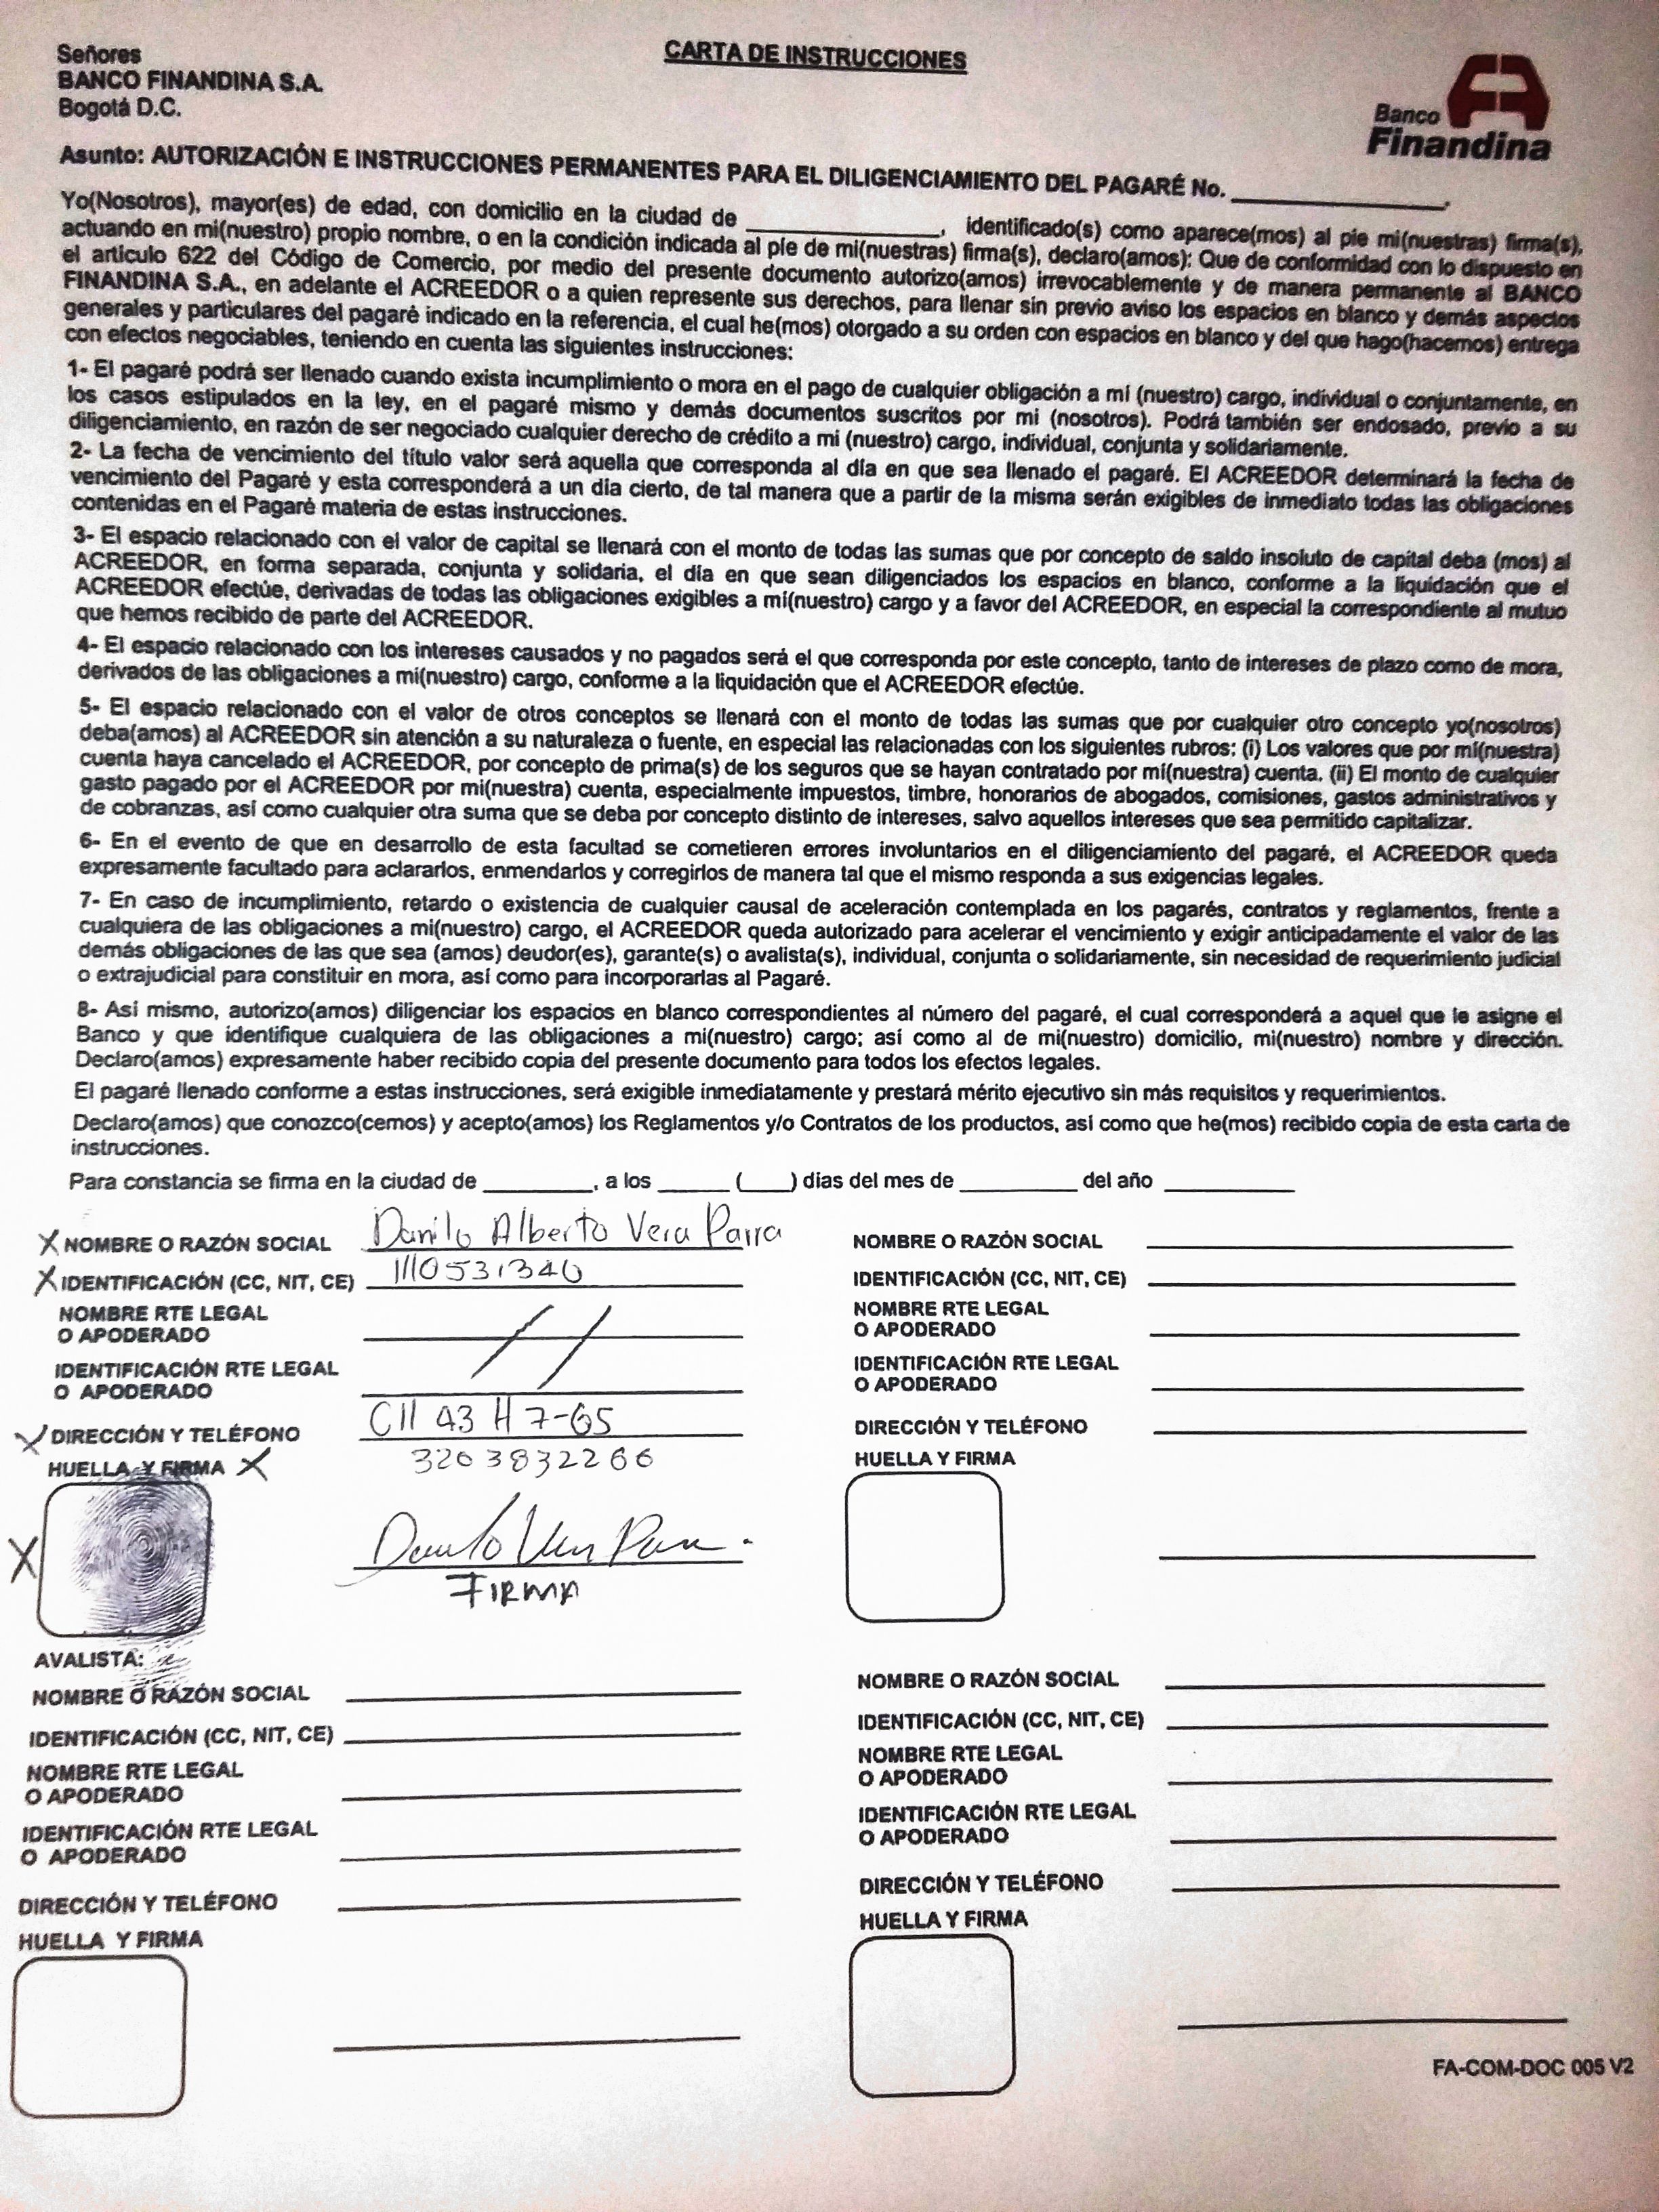 CARTA DE INSTRUCCIONES
Señores
BANCO FINANDINA S.A.
Bogotá D.C.
Banco
Finandina
Asunto: AUTORIZACIÓN E INSTRUCCIONES PERMANENTES PARA EL DILIGENCIAMIENTO DEL PAGARÉ No. ____________.
Yo(Nosotros), mayor(es) de edad, con domicilio en la ciudad de ____________, identificado(s) como aparece(mos) al pie mi(nuestras) firma(s),
actuando en mi(nuestro) propio nombre, o en la condición indicada al pie de mi(nuestras) firma(s), declaro(amos): Que de conformidad con lo dispuesto en
el articulo 622 del Código de Comercio, por medio del presente documento autorizo(amos) irrevocablemente y de manera permanente al BANCO
FINANDINA S.A., en adelante el ACREEDOR o a quien represente sus derechos, para llenar sin previo aviso los espacios en blanco y demás aspectos
generales y particulares del pagaré indicado en la referencia, el cual he(mos) otorgado a su orden con espacios en blanco y del que hago(hacemos) entrega
con efectos negociables, teniendo en cuenta las siguientes instrucciones:
1- El pagaré podrá ser llenado cuando exista incumplimiento o mora en el pago de cualquier obligación a mí (nuestro) cargo, individual o conjuntamente, en
los casos estipulados en la ley, en el pagaré mismo y demás documentos suscritos por mi (nosotros). Podrá también ser endosado, previo a su
diligenciamiento, en razón de ser negociado cualquier derecho de crédito a mi (nuestro) cargo, individual, conjunta y solidariamente.
2- La fecha de vencimiento del título valor será aquella que corresponda al día en que sea llenado el pagaré. El ACREEDOR determinará la fecha de
vencimiento del Pagaré y esta corresponderá a un día cierto, de tal manera que a partir de la misma serán exigibles de inmediato todas las obligaciones
contenidas en el Pagaré materia de estas instrucciones.
3- El espacio relacionado con el valor de capital se llenará con el monto de todas las sumas que por concepto de saldo insoluto de capital deba (mos) al
ACREEDOR, en forma separada, conjunta y solidaria, el día en que sean diligenciados los espacios en blanco, conforme a la liquidación que el
ACREEDOR efectúe, derivadas de todas las obligaciones exigibles a mí(nuestro) cargo y a favor del ACREEDOR, en especial la correspondiente al mutuo
que hemos recibido de parte del ACREEDOR.
4- El espacio relacionado con los intereses causados y no pagados será el que corresponda por este concepto, tanto de intereses de plazo como de mora,
derivados de las obligaciones a mí(nuestro) cargo, conforme a la liquidación que el ACREEDOR efectúe.
5- El espacio relacionado con el valor de otros conceptos se llenará con el monto de todas las sumas que por cualquier otro concepto yo(nosotros)
deba(amos) al ACREEDOR sin atención a su naturaleza o fuente, en especial las relacionadas con los siguientes rubros: (i) Los valores que por mí(nuestra)
cuenta haya cancelado el ACREEDOR, por concepto de prima(s) de los seguros que se hayan contratado por mí(nuestra) cuenta. (ii) El monto de cualquier
gasto pagado por el ACREEDOR por mi(nuestra) cuenta, especialmente impuestos, timbre, honorarios de abogados, comisiones, gastos administrativos y
de cobranzas, así como cualquier otra suma que se deba por concepto distinto de intereses, salvo aquellos intereses que sea permitido capitalizar.
6- En el evento de que en desarrollo de esta facultad se cometieren errores involuntarios en el diligenciamiento del pagaré, el ACREEDOR queda
expresamente facultado para aclararlos, enmendarlos y corregirlos de manera tal que el mismo responda a sus exigencias legales.
7- En caso de incumplimiento, retardo o existencia de cualquier causal de aceleración contemplada en los pagarés, contratos y reglamentos, frente a
cualquiera de las obligaciones a mi(nuestro) cargo, el ACREEDOR queda autorizado para acelerar el vencimiento y exigir anticipadamente el valor de las
demás obligaciones de las que sea (amos) deudor(es), garante(s) o avalista(s), individual, conjunta o solidariamente, sin necesidad de requerimiento judicial
o extrajudicial para constituir en mora, así como para incorporarlas al Pagaré.
8- Así mismo, autorizo(amos) diligenciar los espacios en blanco correspondientes al número del pagaré, el cual corresponderá a aquel que le asigne el
Banco y que identifique cualquiera de las obligaciones a mi(nuestro) cargo; así como al de mi(nuestro) domicilio, mi(nuestro) nombre y dirección.
Declaro(amos) expresamente haber recibido copia del presente documento para todos los efectos legales.
El pagaré llenado conforme a estas instrucciones, será exigible inmediatamente y prestará mérito ejecutivo sin más requisitos y requerimientos.
Declaro(amos) que conozco(cemos) y acepto(amos) los Reglamentos y/o Contratos de los productos, así como que he(mos) recibido copia de esta carta de
instrucciones.
Para constancia se firma en la ciudad de ________, a los _____ (___) dias del mes de ________ del año ________
X NOMBRE O RAZÓN SOCIAL Danilo Alberto Vera Parra
X IDENTIFICACIÓN (CC, NIT, CE) 1110531340
NOMBRE RTE LEGAL
O APODERADO
IDENTIFICACIÓN RTE LEGAL
O APODERADO
X DIRECCIÓN Y TELÉFONO Cll 43 H 7-65
HUELLA Y FIRMA X 3203832266
X
Danilo Vera Parra
FIRMA
NOMBRE O RAZÓN SOCIAL
IDENTIFICACIÓN (CC, NIT, CE)
NOMBRE RTE LEGAL
O APODERADO
IDENTIFICACIÓN RTE LEGAL
O APODERADO
DIRECCIÓN Y TELÉFONO
HUELLA Y FIRMA
AVALISTA:
NOMBRE O RAZÓN SOCIAL
IDENTIFICACIÓN (CC, NIT, CE)
NOMBRE RTE LEGAL
O APODERADO
IDENTIFICACIÓN RTE LEGAL
O APODERADO
DIRECCIÓN Y TELÉFONO
HUELLA Y FIRMA
NOMBRE O RAZÓN SOCIAL
IDENTIFICACIÓN (CC, NIT, CE)
NOMBRE RTE LEGAL
O APODERADO
IDENTIFICACIÓN RTE LEGAL
O APODERADO
DIRECCIÓN Y TELÉFONO
HUELLA Y FIRMA
FA-COM-DOC 005 V2